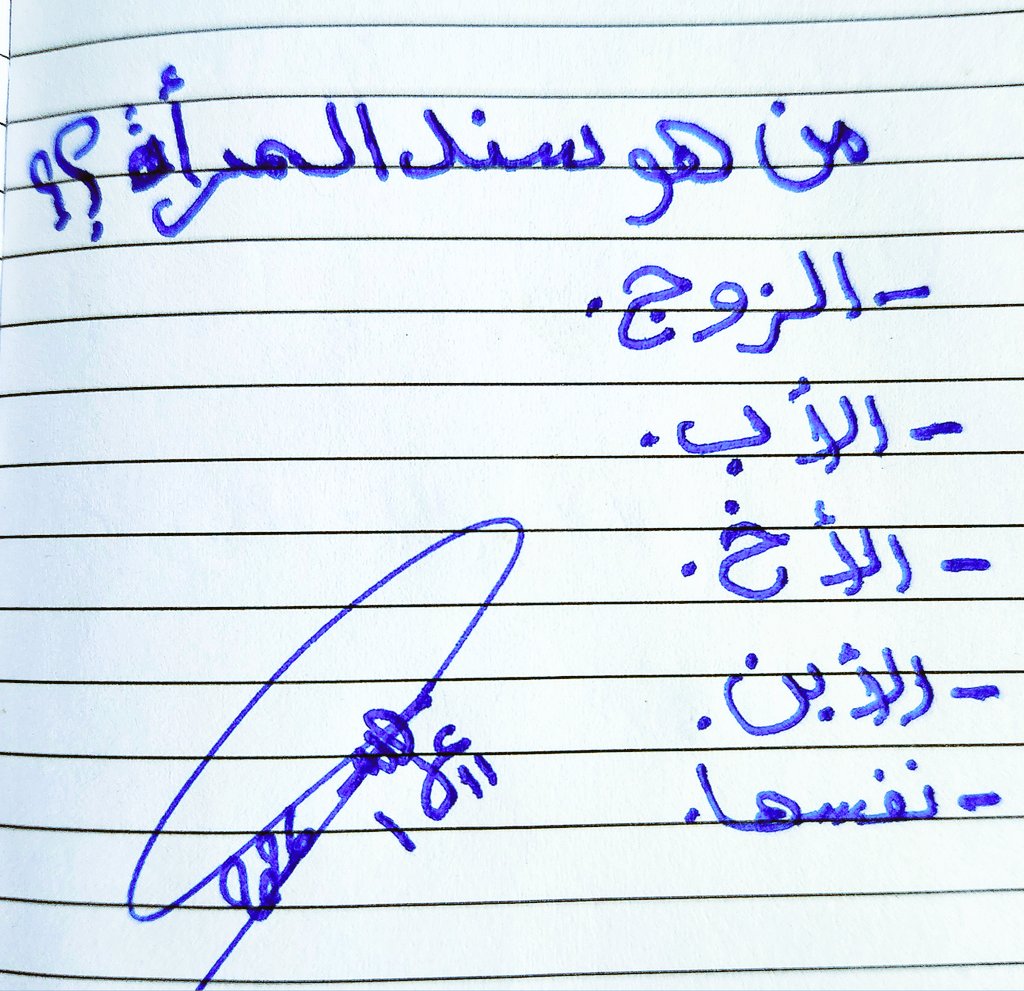 من هو سند المرأة ؟؟
- الزوج.
- الأب.
- الأخ.
- الأبن.
- نفسها.